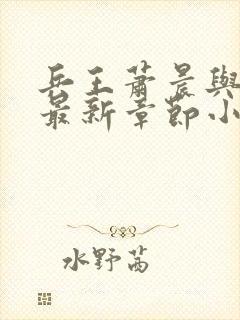 兵王蕭晨與
最新章節小
水野茜